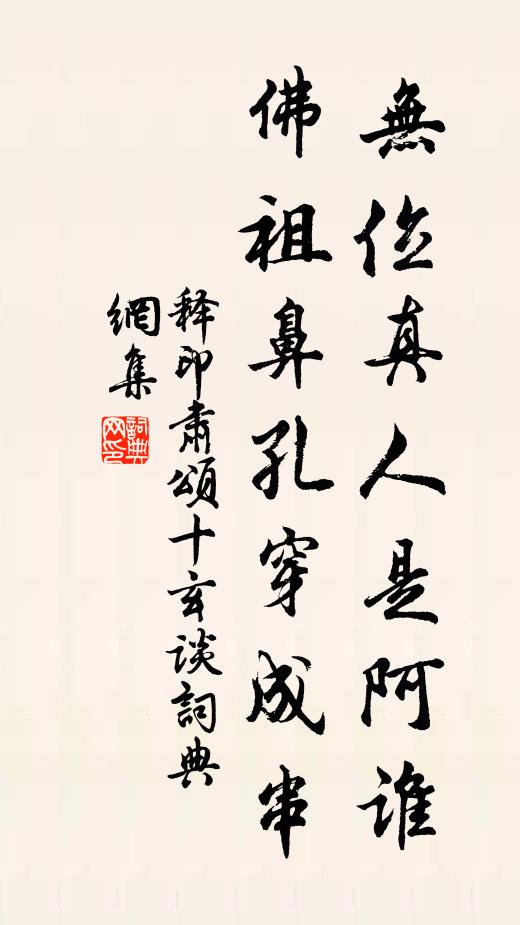 無位真人是阿誰
佛祖鼻孔穿成串
释印肃頌十玄談詞典
網集
詞典網印